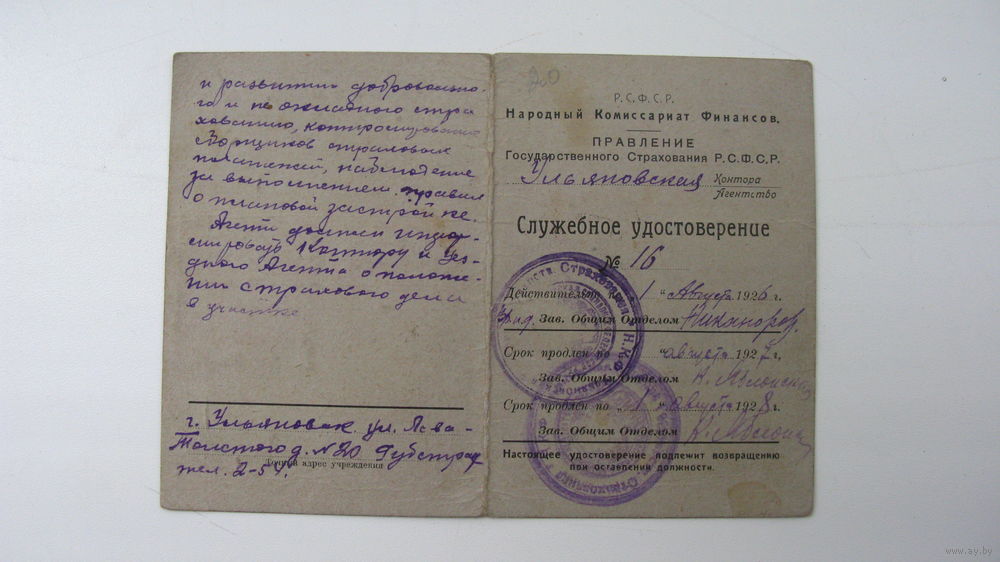 и развитии добровольно-
го и по окладного стра
хованию, контролирование
сборщиков страховых
платежей, наблюдение
за выполнением правил
о плановой застройке.
Агент должен инфор-
мировать Контору и Уез-
дного Агента о положе-
нии страхового дела
в участке
г. Ульяновск ул. Льва-
Толстого д. №20 Губстрах
Точный адрес учреждения
тел. 2-54.
20
Р.С.Ф.С.Р.
Народный Комиссариат Финансов.
ПРАВЛЕНИЕ
Государственного Страхования Р.С.Ф.С.Р.
Ульяновская Контора
Агентство
Служебное удостоверение
№ 16
Действительно по 1 "Августа 1926 г.
Зав. Общим Отделом Никаноров
Срок продлен по " августа 1927 г.
Зав. Общим Отделом
Срок продлен по 1 " августа 1928 г.
Зав. Общим Отделом
Настоящее удостоверение подлежит возвращению
при оставлении должности.
www.ay.by